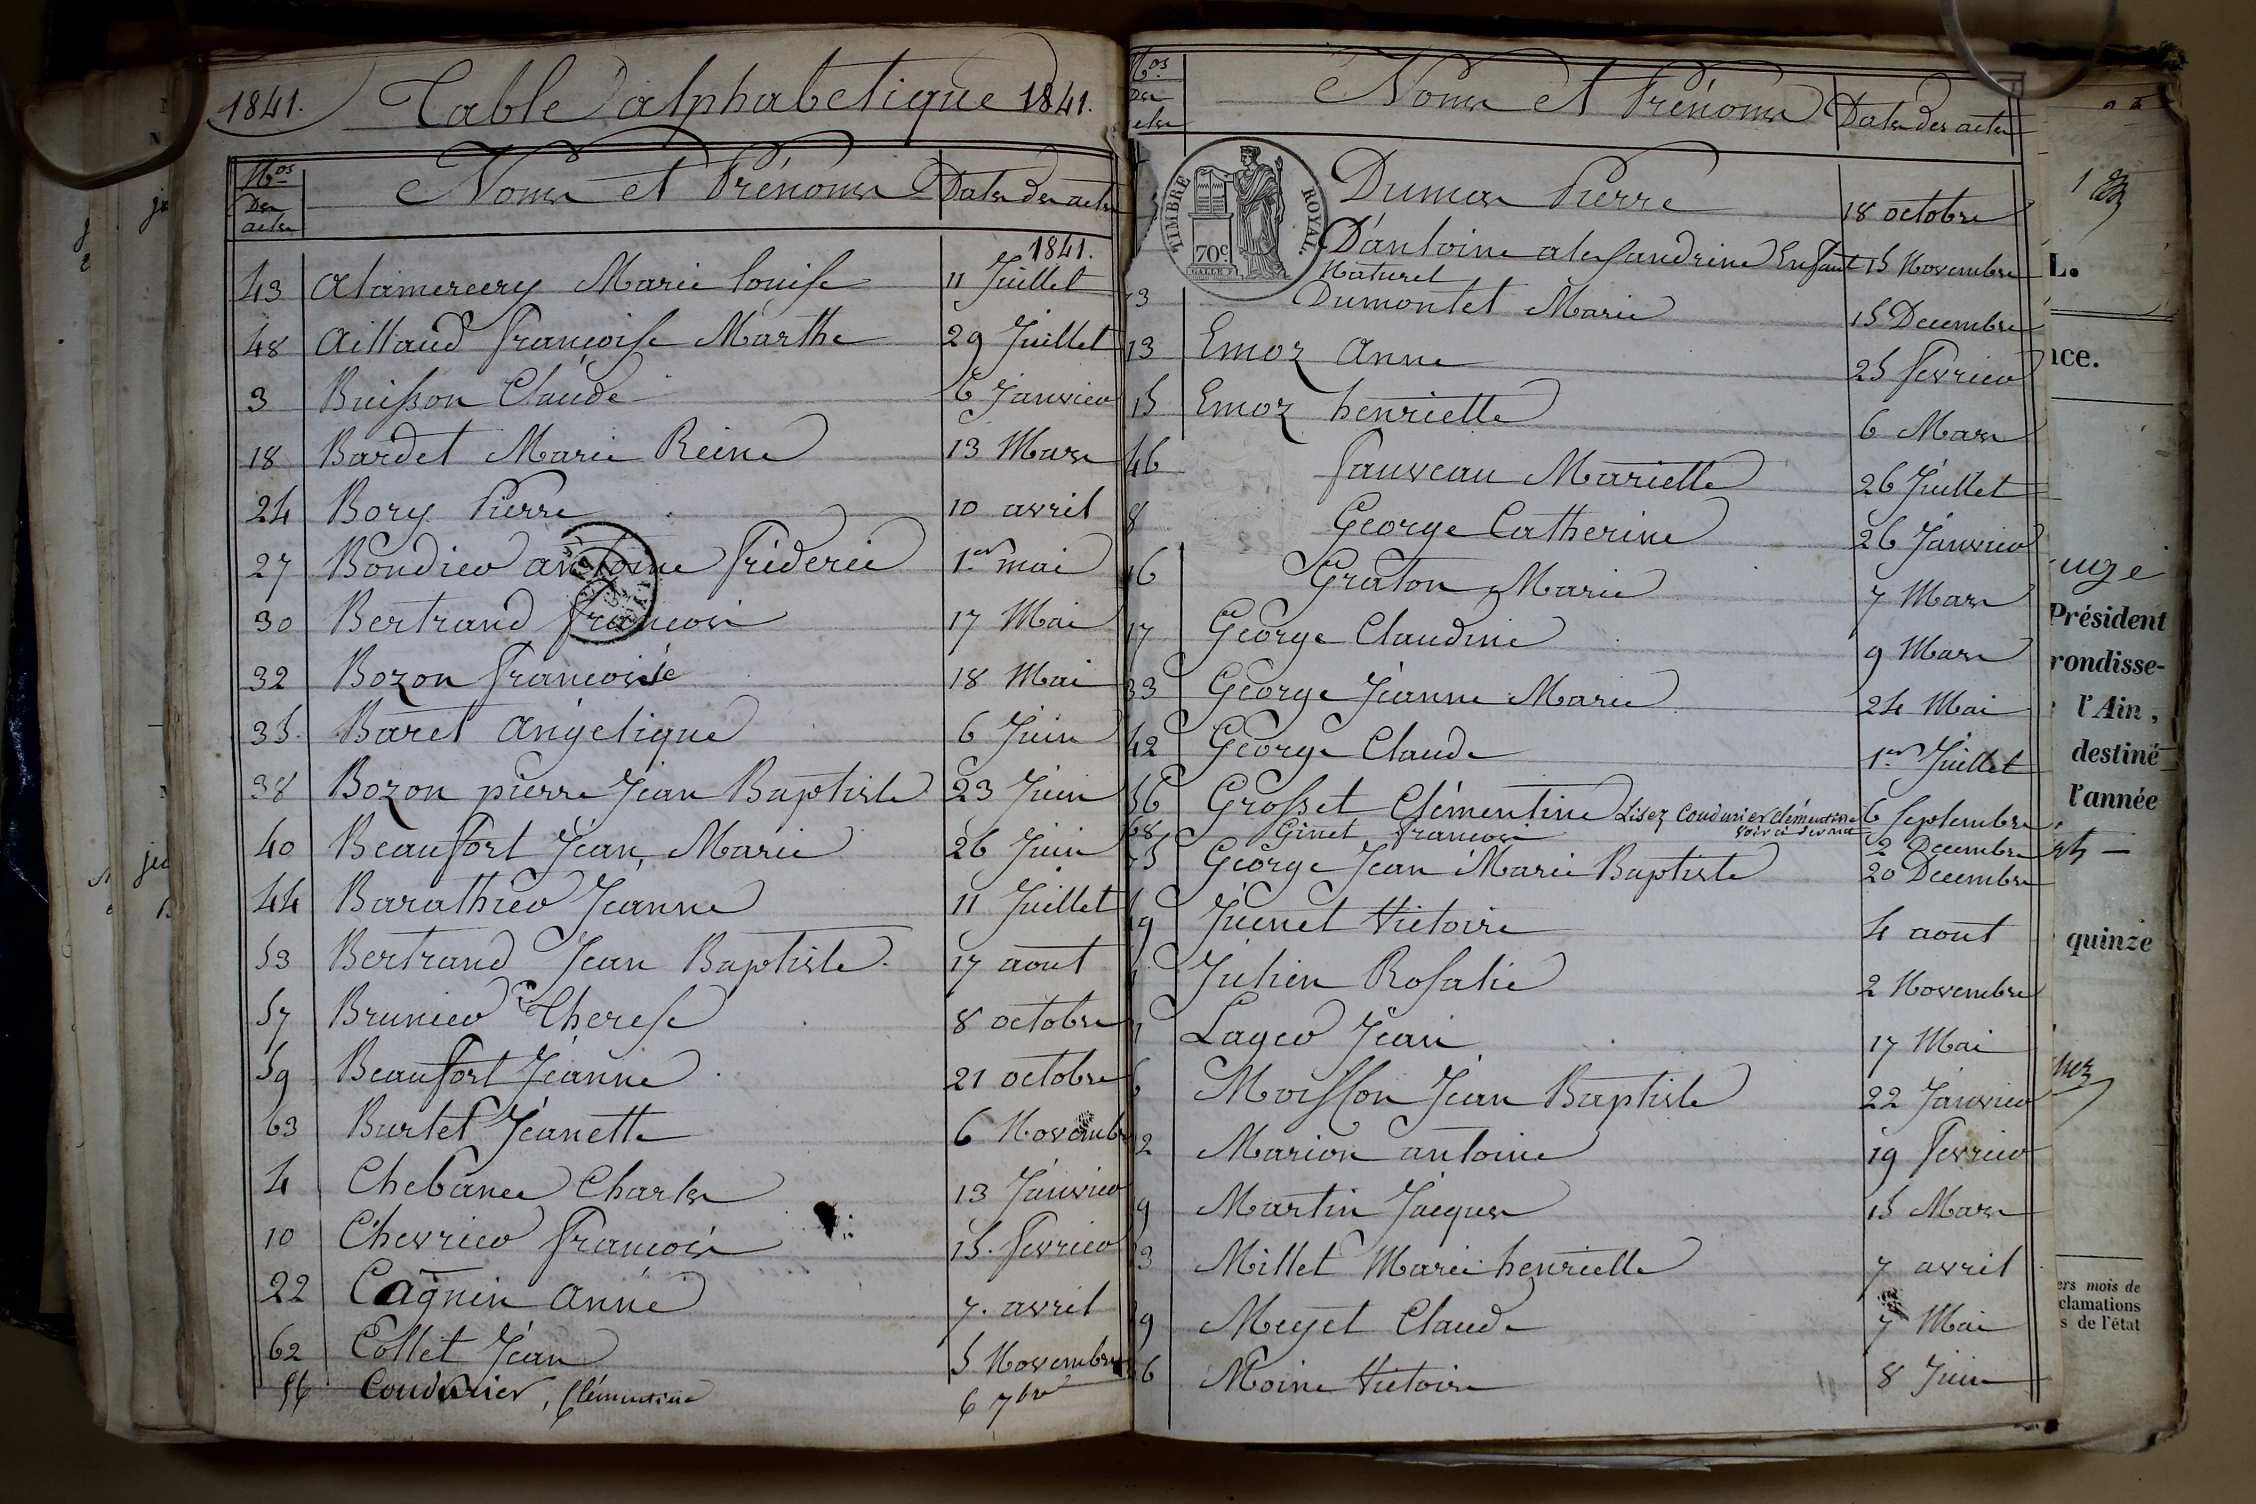 1841. Table alphabetique 1841.
Nos Des actes Noms et Prénoms Dates des actes
1841.
43 Alamercery Marie Louise 11 Juillet
48 Aillaud françoise Marthe 29 Juillet
3 Buisson Claude 6 Janvier
18 Bardet Marie Reine 13 Mars
24 Bory Pierre 10 avril
27 Bondier antoine fréderic 1er mai
30 Bertrand françois 17 Mai
32 Bozon françoise 18 Mai
35. Baret Angelique 6 Juin
38 Bozon pierre Jean Baptiste 23 Juin
40 Beaufort Jean, Marie 26 Juin
44 Barathier Jeanne 11 Juillet
53 Bertrand Jean Baptiste 17 aout
57 Brunier Therese 8 octobre
59 Beaufort Jeanne 21 octobre
63 Burlet Jeanette 6 Novembre
4 Chebance Charles 13 Janvier
10 Chevrier françois 15. fevrier
22 Cagnin anne 7. avril
62 Collet Jean 5 Novembre
56 Coudurier, Clémentine 6 7bre
Nos Des actes Noms et Prénoms Dates des actes
TIMBRE ROYAL.
70c
Dumas Pierre 18 octobre
D'antoine alexandrine Enfant 15 Novembre
Naturel
73 Dumontet Marie 15 Decembre
13 Emoz Anne 25 fevrier
15 Emoz henriette 6 Mars
46 fauveau Mariette 26 Juillet
8 George Catherine 26 Janvier
16 Graton Marie 7 Mars
17 George Claudine 9 Mars
33 George Jeanne Marie 24 Mai
42 George Claude 1er Juillet
56 Grosset Clémentine Lisez Coudurier Clémentine 6 Septembre
voir ci devant
68 Ginet françois 2 Decembre
75 George Jean Marie Baptiste 20 Decembre
49 Juenet Victoire 4 aout
Julien Rosalie 2 Novembre
Lager Jean 17 Mai
6 Moisson Jean Baptiste 22 Janvier
12 Marion antoine 19 fevrier
19 Martin Jacques 15 Mars
23 Millet Marie henriette 7 avril
29 Meyet Claude 7 Mai
36 Moine Victoire 8 Juin
L.
nce.
uge
Président
rondisse-
l'Ain,
destiné
l'année
quinze
ers mois de
clamations
s de l'état